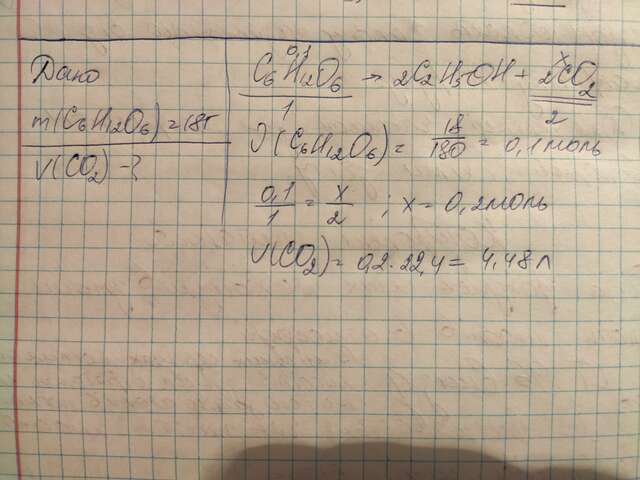 Дано
m(C6H12O6) = 18г
V(CO2) - ?
0,1 x
C6H12O6 → 2C2H5OH + 2CO2
1 2
ν(C6H12O6) = 18/180 = 0,1 моль
0,1/1 = x/2 ; x = 0,2 моль
V(CO2) = 0,2 · 22,4 = 4,48 л